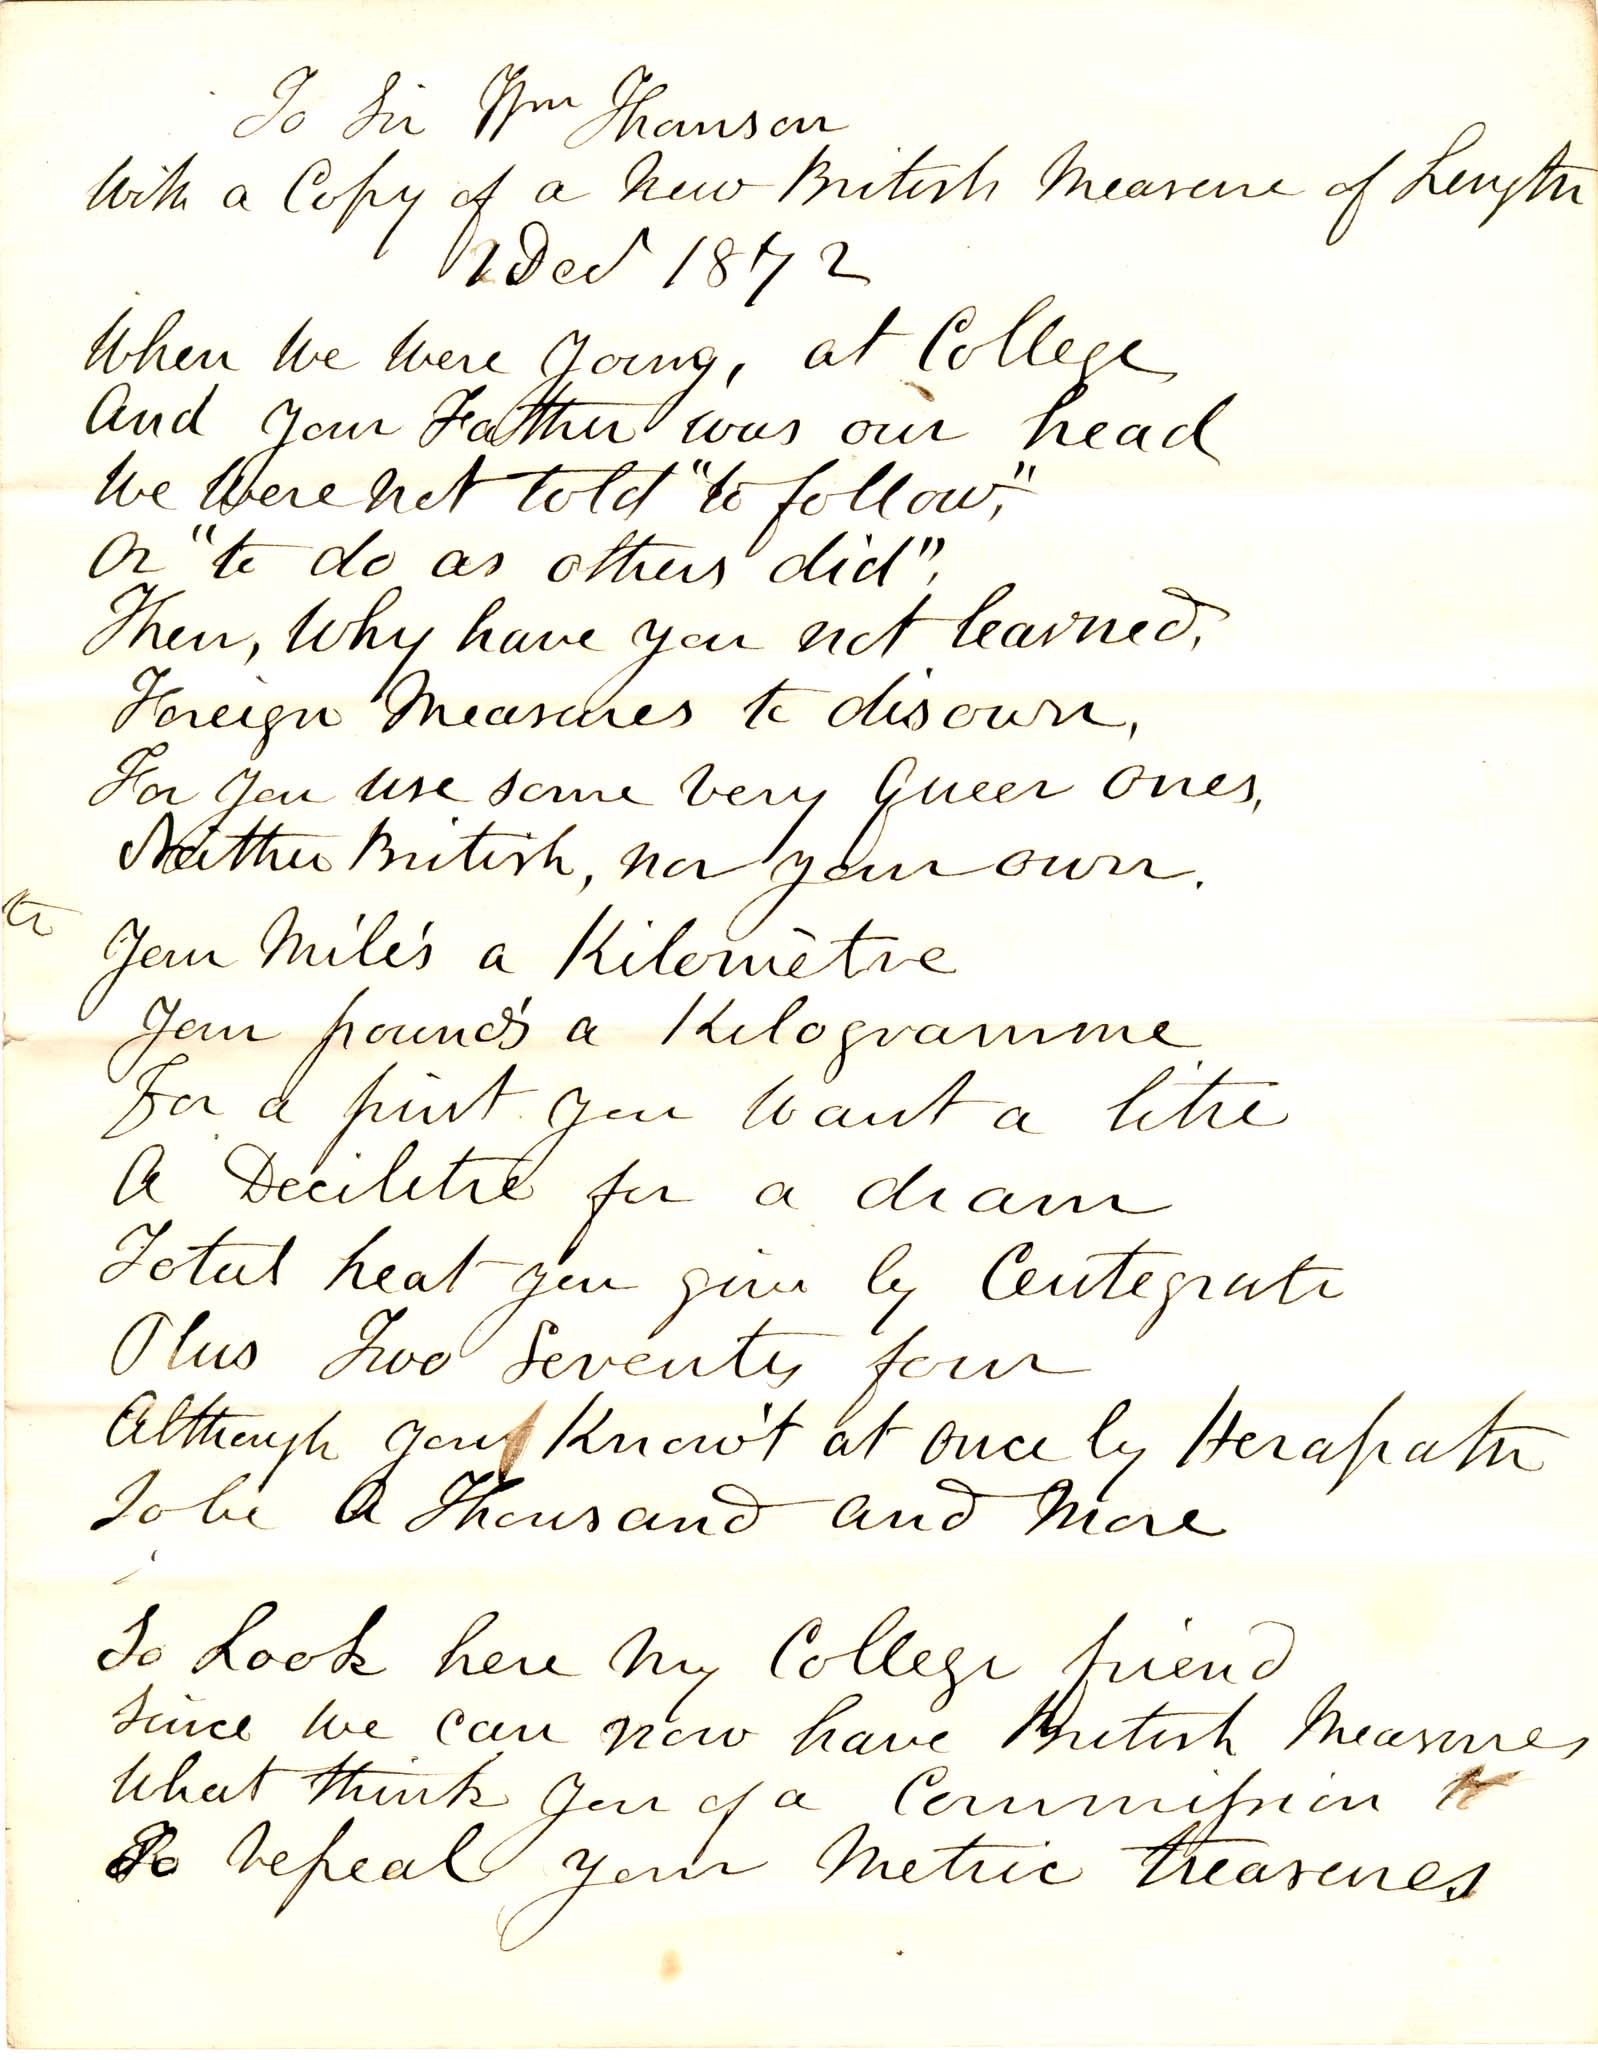 To Sir Wm Thomson
With a Copy of a New British Measure of Length
2 Decr 1872
When we were young, at College
And your Father was our head
We were not told "to follow,"
Or "to do as others did",
Then, Why have you not learned,
Foreign Measures to disown,
For you use some very Queer ones,
Neither British, nor your own.
Your Mile's a Kilomètre
Your pound's a Kilogramme
For a pint you want a litre
A Decilitre for a dram
Total heat you give by Centegrate
Plus Two Seventy four
Although you Know't at once by Herapath
To be A Thousand and More
So Look here My College friend
Since We can now have British Measures
What think you of a Commission
To repeal your Metric treasures